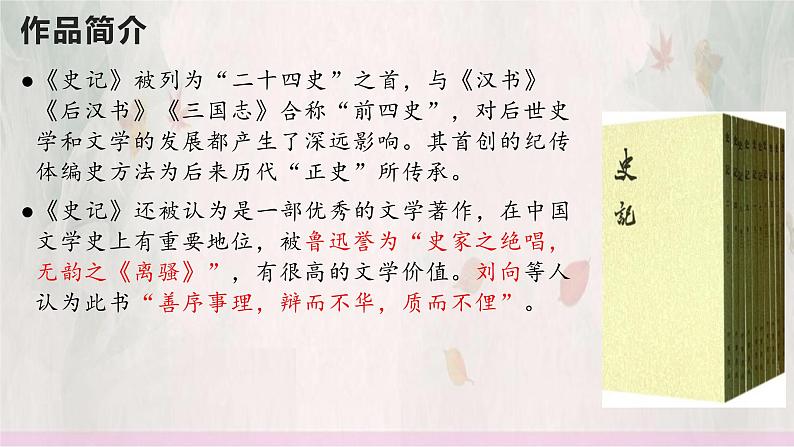 作品简介
●《史记》被列为“二十四史”之首，与《汉书》
《后汉书》《三国志》合称“前四史”，对后世史
学和文学的发展都产生了深远影响。其首创的纪传
体编史方法为后来历代“正史”所传承。
●《史记》还被认为是一部优秀的文学著作，在中国
文学史上有重要地位，被鲁迅誉为“史家之绝唱，
无韵之《离骚》”，有很高的文学价值。刘向等人
认为此书“善序事理，辩而不华，质而不俚”。
史记